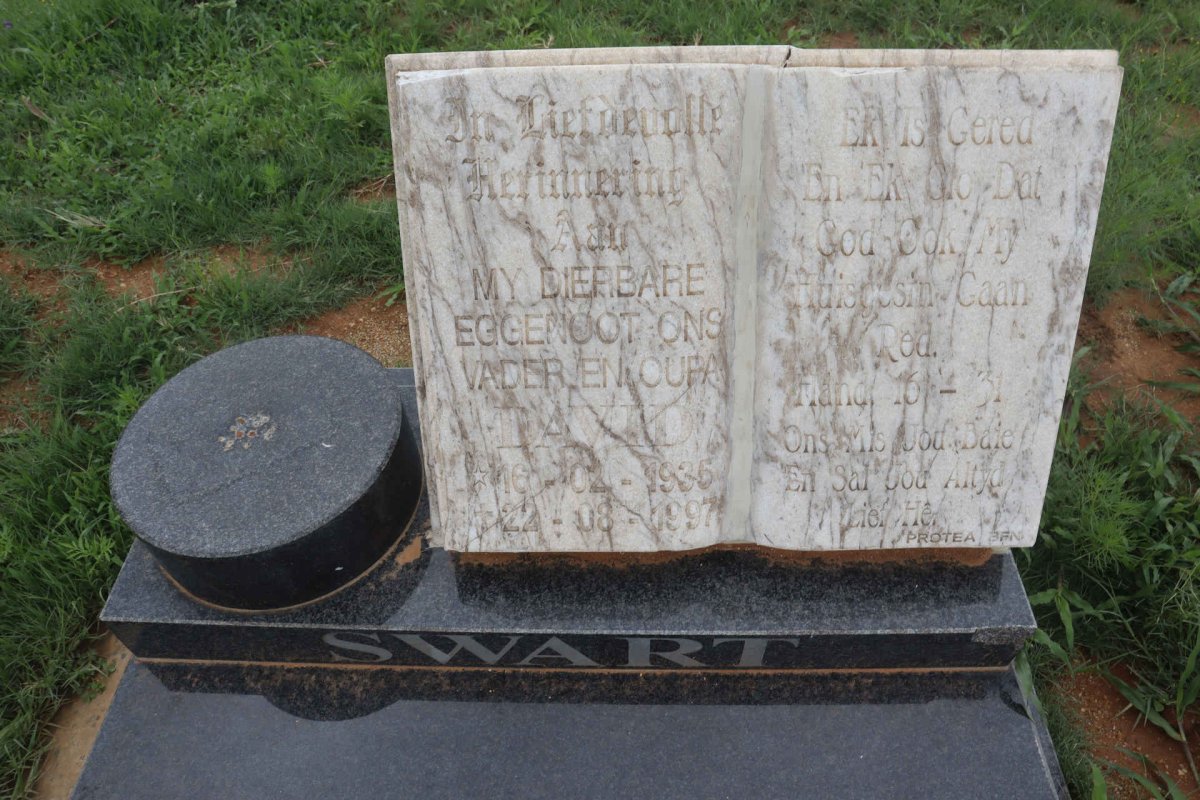 In Liefdevolle
Herinnering
Aan
MY DIERBARE
EGGENOOT ONS
VADER EN OUPA
DAVID
* 16 - 02 - 1935
† 22 - 08 - 1997
Ek Is Gered
En Ek Glo Dat
God Ook My
Huisgesin Gaan
Red.
Hand 16 - 31
Ons Mis Jou Baie
En Sal Jou Altyd
Lief Hê.
PROTEA BFN
SWART